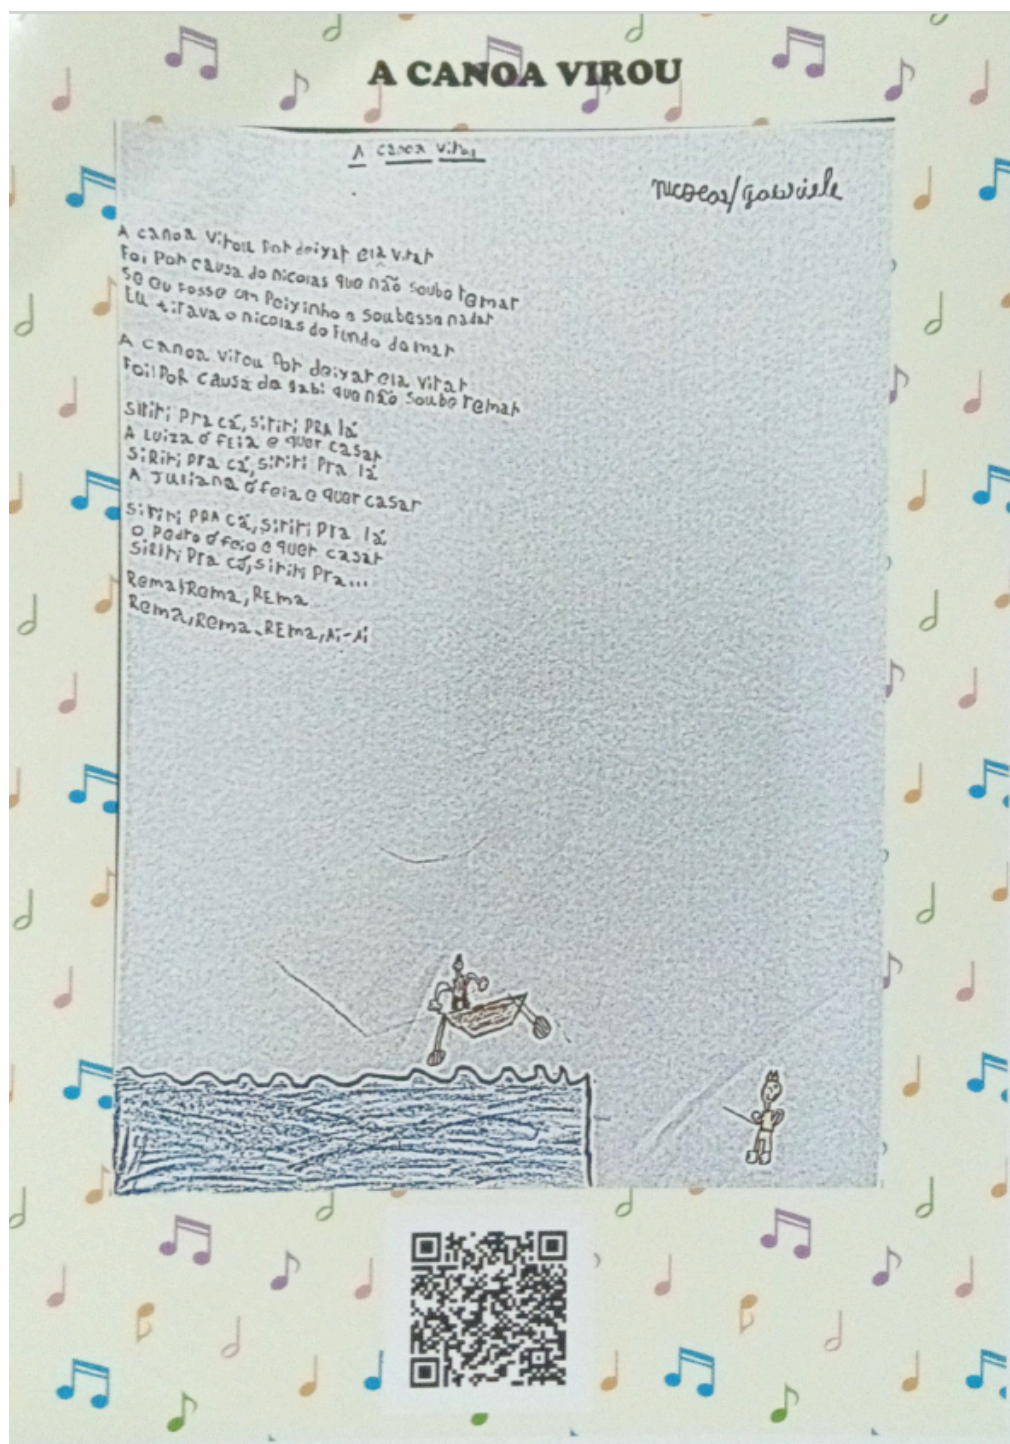 A CANOA VIROU
A canoa virou
nicolas/gabriele
A canoa virou por deixar ela virar
Foi por causa do nicolas que não soube remar
Se eu fosse um peixinho e soubesse nadar
Eu tirava o nicolas do fundo do mar
A canoa virou por deixar ela virar
Foi por causa da gabi que não soube remar
Siriri pra cá, siriri PRA lá
A Luiza é feia e quer casar
SiRiri pra cá, siriri pra lá
A Juliana é feia e quer casar
Siriri PRA cá, siriri pra lá
O Pedro é feio e quer casar
Siriri pra cá, siriri pra...
Rema, Rema, REma
Rema, Rema, REma, Ai-Ai